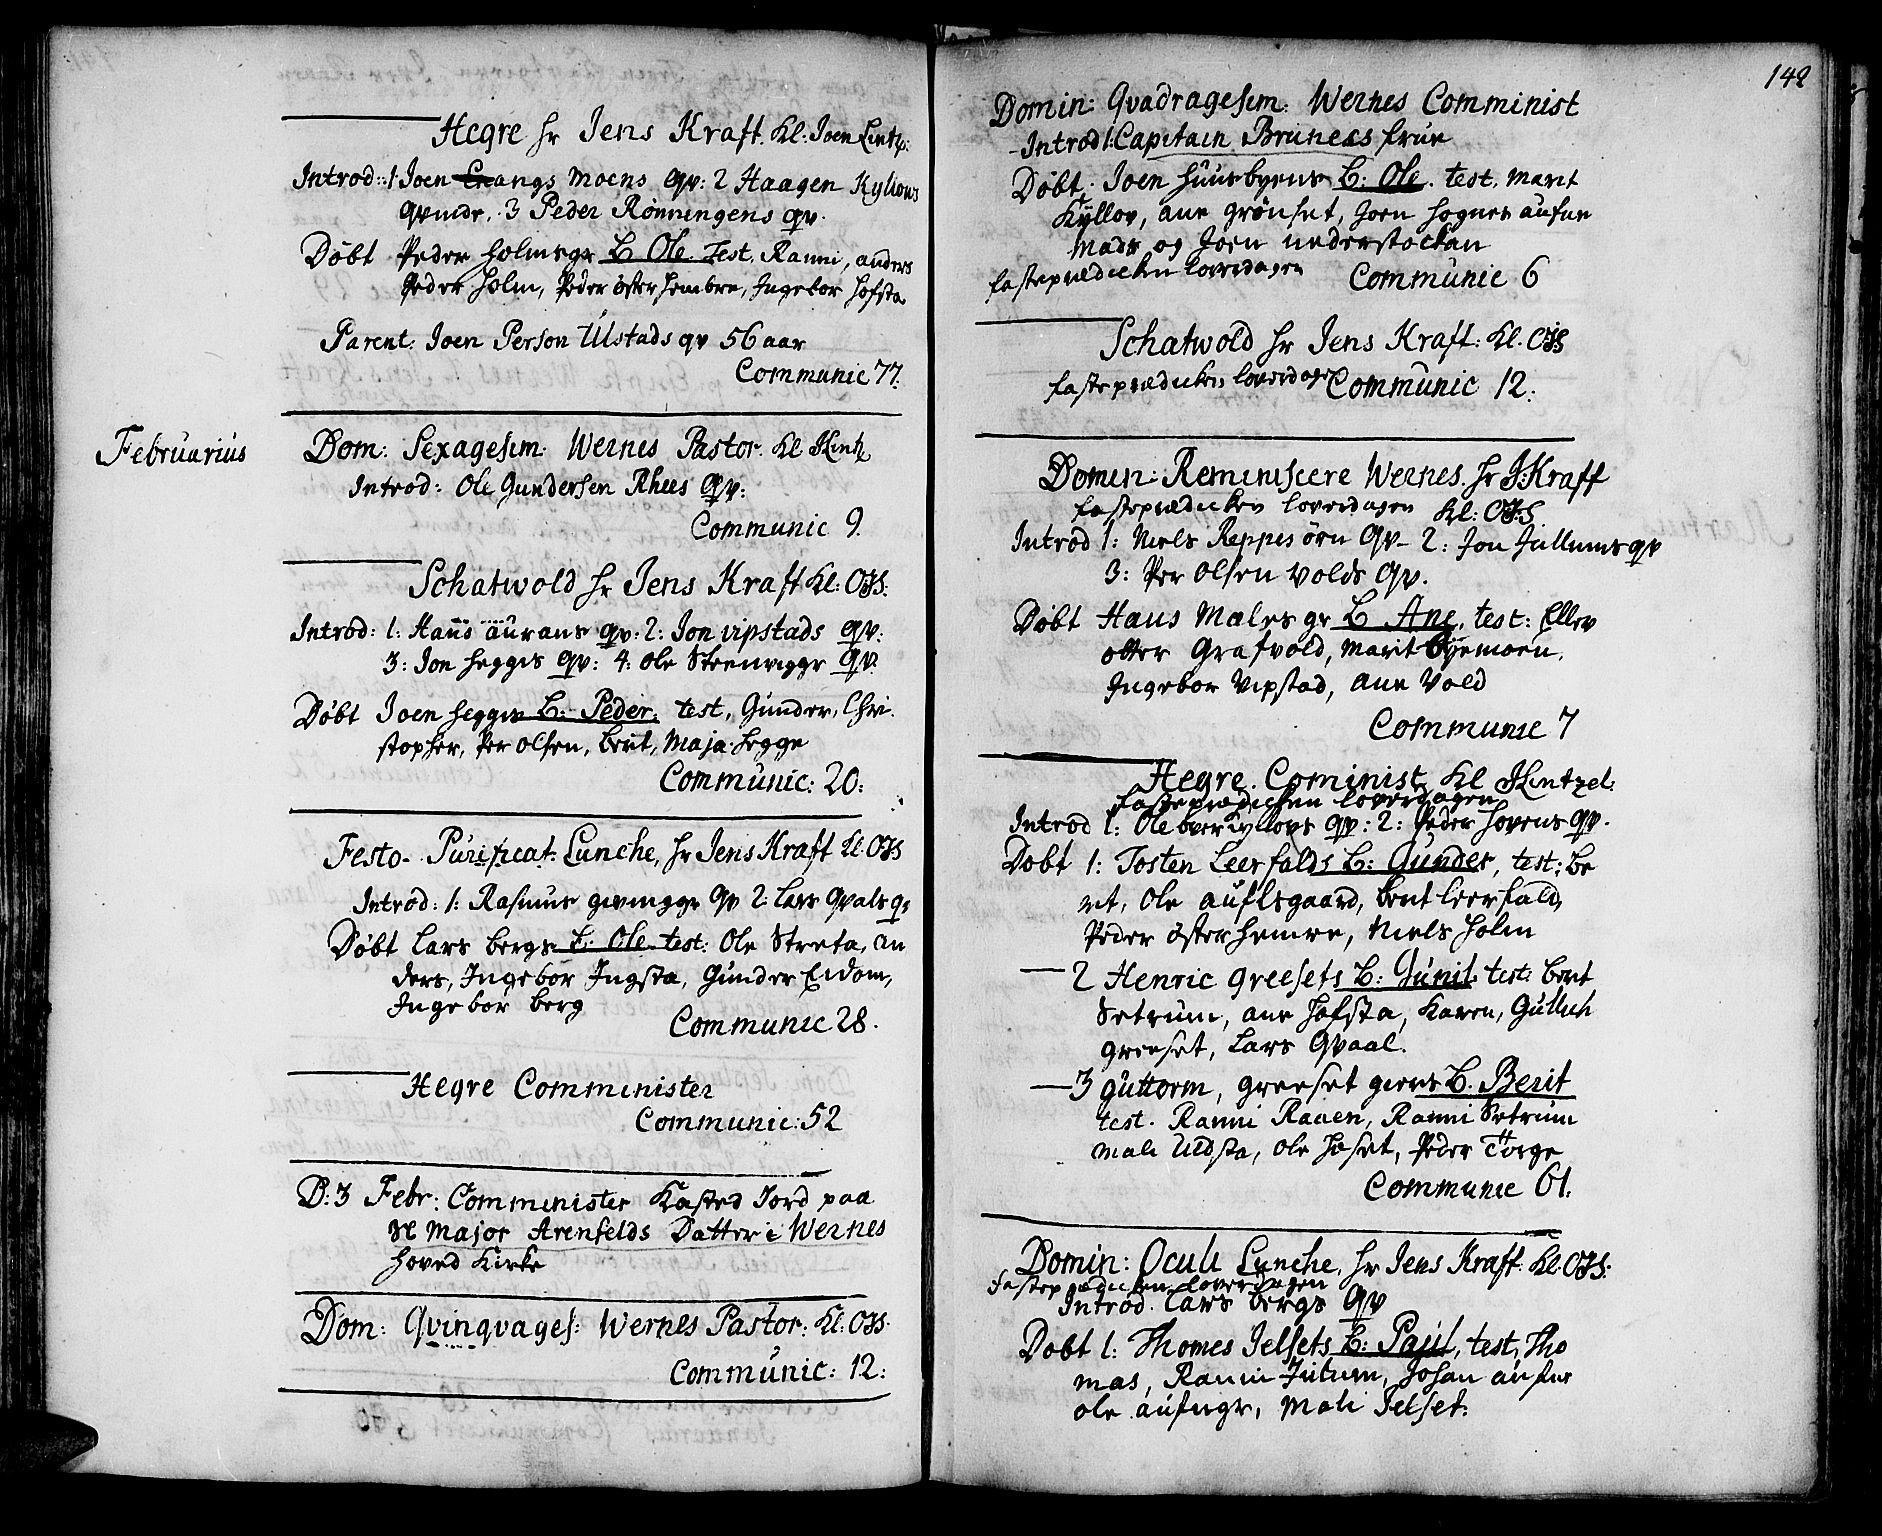 Hegre hr Jens Kraft. Kl: Joen Lintz:
Introd: 1 Joen angs Moens qv: 2 Haagen Kyllovs
qvinde. 3 Peder Rønningens qv.
Døbt Peder holms gr B Ole. Test. Ranni, anders
Peder Holm, Peder østerhembre, Ingebor hofsta
Parent: Joen Person Ulstads qv 56 aar
Communic 77.
Februarius
Dom: Sexagesim: Wernes Pastor. Kl JLintz
Introd: Ole Gundersen Rhees qv:
Communic 9.
Schatwold hr Jens Kraft Kl: OJS.
Introd: 1: Hans aurans qv: 2: Jon vipstads qv:
3: Jon hegges qv: 4: ole Steenvigge qv.
Døbt Joen hegges B: Peder: test, Gunder, Chri
stopher, Per olsen, berit, Maja hegge
Communic: 20:
Festo Purificat: Lunche, hr Jens Kraft Kl: OJS
Introd: 1: Rasmus gevingge qv 2: Lars Qvals qv
Døbt Lars bergs B: Ole test: Ole Streta, an
ders, Ingebor Ingsta, Gunder Eidom,
Ingebor berg
Communic 28.
Hegre Comminister
Communic: 52
D: 3 Febr: Comminister Kasted Jord paa
Sl Major Arenfelds Datter i Wernes
hoved Kirke
Dom: Qvinqvages: Wernes Pastor: Kl: OJS.
Communic: 12:
142
Domin: Qvadragesim: Wernes Comminist
Introd 1: Capitain Brunecs frue
Døbt Joen huusbyens B: Ole. test. Marit
Kyllov, ane grønset, Joen hognes aufne
Mads og Joen nederstockan
fasteprædicken løverdagen Communic 6
Schatwold hr Jens Kraft: Kl. OJS
fasteprædicken løverdagen Communic 12:
Domin: Reminiscere Wernes. hr J: Kraft
fasteprædicken løverdagen Kl: OJS.
Introd 1: Niels Reppes ørn qv 2: Jon Jullums qv
3: Per olsen Volds qv.
Døbt Hans Mæles gr B Ane, test: Ellev
otter Grafvold, Marit Byemoen,
Ingebor Vipstad, ane Vold
Communic 7
Hegre. Cominist Kl JLintzel:
fasteprædicken løverdagen
Introd 1: Ole overkyllovs qv: 2: Peder hovens qv.
Døbt 1: Tosten Leerfalds B: Gunder, test: Be
rit, Ole auflsgaard, berit leerfald,
Peder østerhemre, Niels holm
2 Henric greesets B: Gunil test: berit
Setrum, ane hofsta, Karen, Gulluh
greeset, Lars Qvaal.
3 guttorm, greeset giers B. Berit
test. Ranni Raaen, Ranni Setrum
Mali Uldsta, ole hoset, Peder Torge
Communic 61.
Domin: Oculi Lunche, hr Jens Kraft Kl. OJS:
fasteprædicken løverdagen
Introd. Lars bergs qv
Døbt 1: Thomes Jelsets B: Paul, test, Tho
mas, Ranni Jutum, Johan aufne
ole aufngr, Mali Jelset.